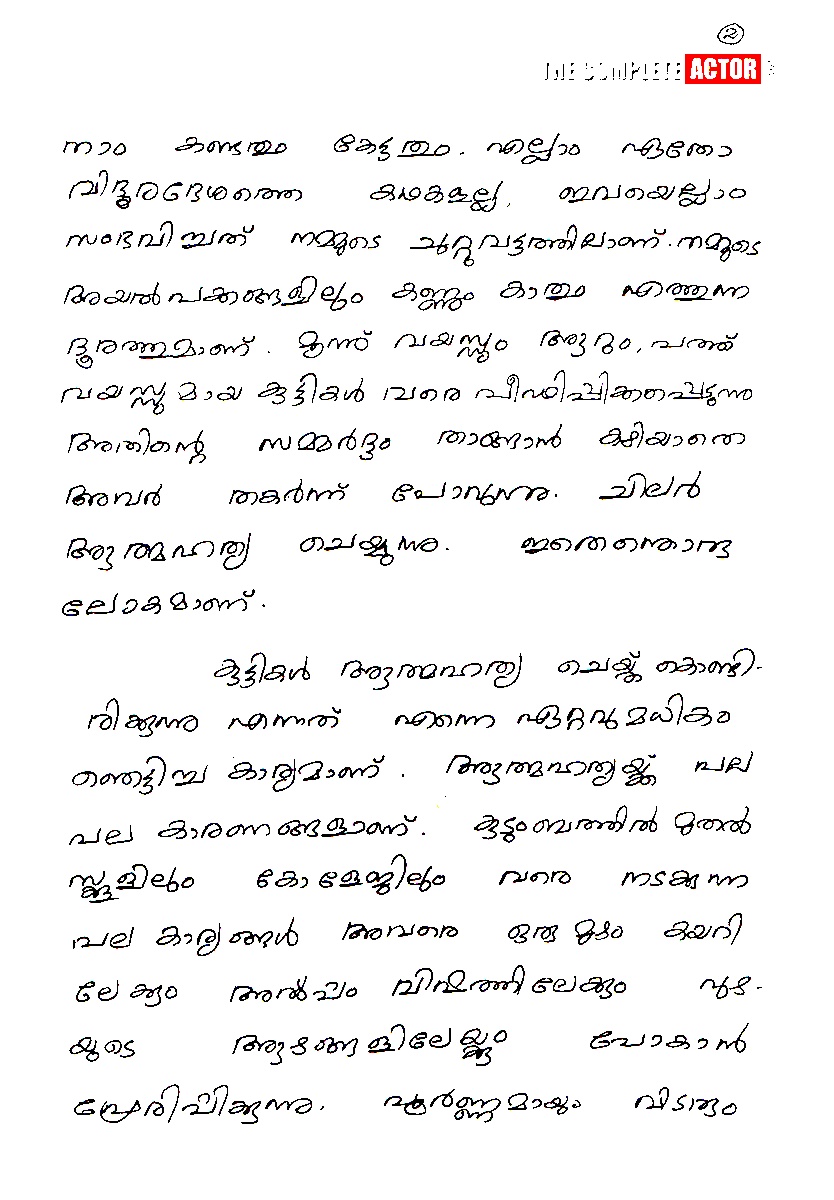 2
THE COMPLETE ACTOR
നാം കണ്ടതും കേട്ടതും. എല്ലാം ഏതോ
വിദൂരദേശത്തെ കഥകളല്ല, ഇവയെല്ലാം
സംഭവിച്ചത് നമ്മുടെ ചുറ്റുവട്ടത്തിലാണ്. നമ്മുടെ
അയൽപക്കങ്ങളിലും കണ്ണും കാതും എത്തുന്ന
ദൂരത്തുമാണ്. മൂന്ന് വയസ്സും ആറും, പത്ത്
വയസ്സുമായ കുട്ടികൾ വരെ പീഢിപ്പിക്കപ്പെടുന്നു
അതിന്റെ സമ്മർദ്ദം താങ്ങാൻ കഴിയാതെ
അവർ തകർന്ന് പോവുന്നു. ചിലർ
ആത്മഹത്യ ചെയ്യുന്നു. ഇതെന്തൊരു
ലോകമാണ്.
കുട്ടികൾ ആത്മഹത്യ ചെയ്ത് കൊണ്ടി-
രിക്കുന്നു എന്നത് എന്നെ ഏറ്റവുമധികം
ഞെട്ടിച്ച കാര്യമാണ്. ആത്മഹത്യയ്ക്ക് പല
പല കാരണങ്ങളാണ്. കുടുംബത്തിൽ മുതൽ
സ്ക്കൂളിലും കോളേജിലും വരെ നടക്കുന്ന
പല കാര്യങ്ങൾ അവരെ ഒരു മുഴം കയറി
ലേക്കും അൽപം വിഷത്തിലേക്കും പുഴ-
യുടെ ആഴങ്ങളിലേയ്ക്കും പോകാൻ
പ്രേരിപ്പിക്കുന്നു. പൂർണ്ണമായും വിടരും